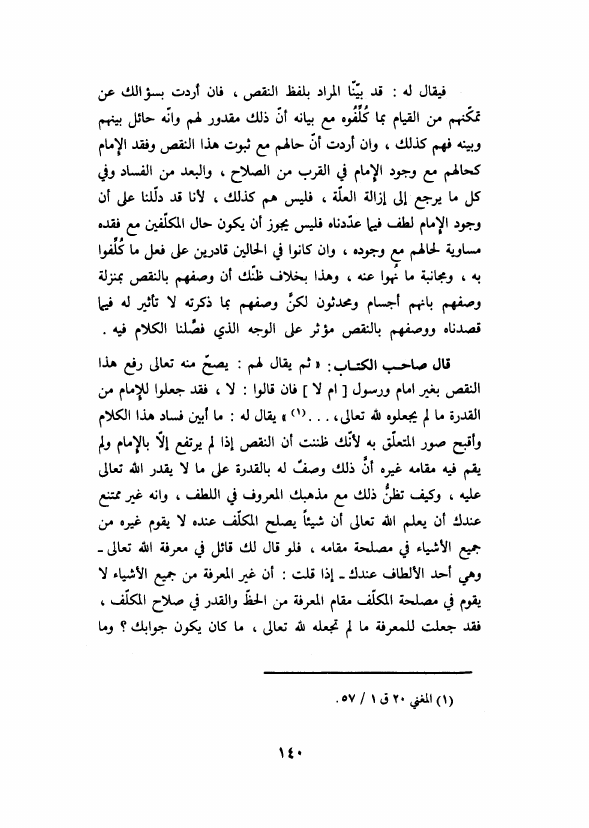 فيقال له : قد بيّنّا المراد بلفظ النقص ، فان أردت بسؤالك عن
تمكّنهم من القيام بما كُلِّفُوه مع بيانه أنّ ذلك مقدور لهم وانّه حائل بينهم
وبينه فهم كذلك ، وان أردت أنّ حالهم مع ثبوت هذا النقص وفقد الإمام
كحالهم مع وجود الإمام في القرب من الصلاح ، والبعد من الفساد وفي
كل ما يرجع إلى إزالة العلّة ، فليس هم كذلك ، لأنا قد دلّلنا على أن
وجود الإمام لطف فيما عدّدناه فليس يجوز أن يكون حال المكلّفين مع فقده
مساوية لحالهم مع وجوده ، وان كانوا في الحالين قادرين على فعل ما كُلِّفوا
به ، ومجانبة ما نُهوا عنه ، وهذا بخلاف ظنّك أن وصفهم بالنقص بمنزلة
وصفهم بانهم أجسام ومحدثون لكنَّ وصفهم بما ذكرته لا تأثير له فيما
قصدناه ووصفهم بالنقص مؤثر على الوجه الذي فصّلنا الكلام فيه .
قال صاحب الكتاب : « ثم يقال لهم : يصحّ منه تعالى رفع هذا
النقص بغير امام ورسول [ ام لا ] فان قالوا : لا ، فقد جعلوا للإمام من
القدرة ما لم يجعلوه لله تعالى، . . . (١) » يقال له : ما أبين فساد هذا الكلام
وأقبح صور المتعلّق به لأنّك ظننت أن النقص إذا لم يرتفع إلّا بالإمام ولم
يقم فيه مقامه غيره أنَّ ذلك وصفٌ له بالقدرة على ما لا يقدر الله تعالى
عليه ، وكيف تظنُّ ذلك مع مذهبك المعروف في اللطف ، وانه غير ممتنع
عندك أن يعلم الله تعالى أن شيئاً يصلح المكلّف عنده لا يقوم غيره من
جميع الأشياء في مصلحة مقامه ، فلو قال لك قائل في معرفة الله تعالى ـ
وهي أحد الألطاف عندك ـ إذا قلت : أن غير المعرفة من جميع الأشياء لا
يقوم في مصلحة المكلّف مقام المعرفة من الحظّ والقدر في صلاح المكلّف ،
فقد جعلت للمعرفة ما لم تجعله لله تعالى ، ما كان يكون جوابك ؟ وما
(١) المغني ٢٠ ق ١ / ٥٧ .
١٤٠